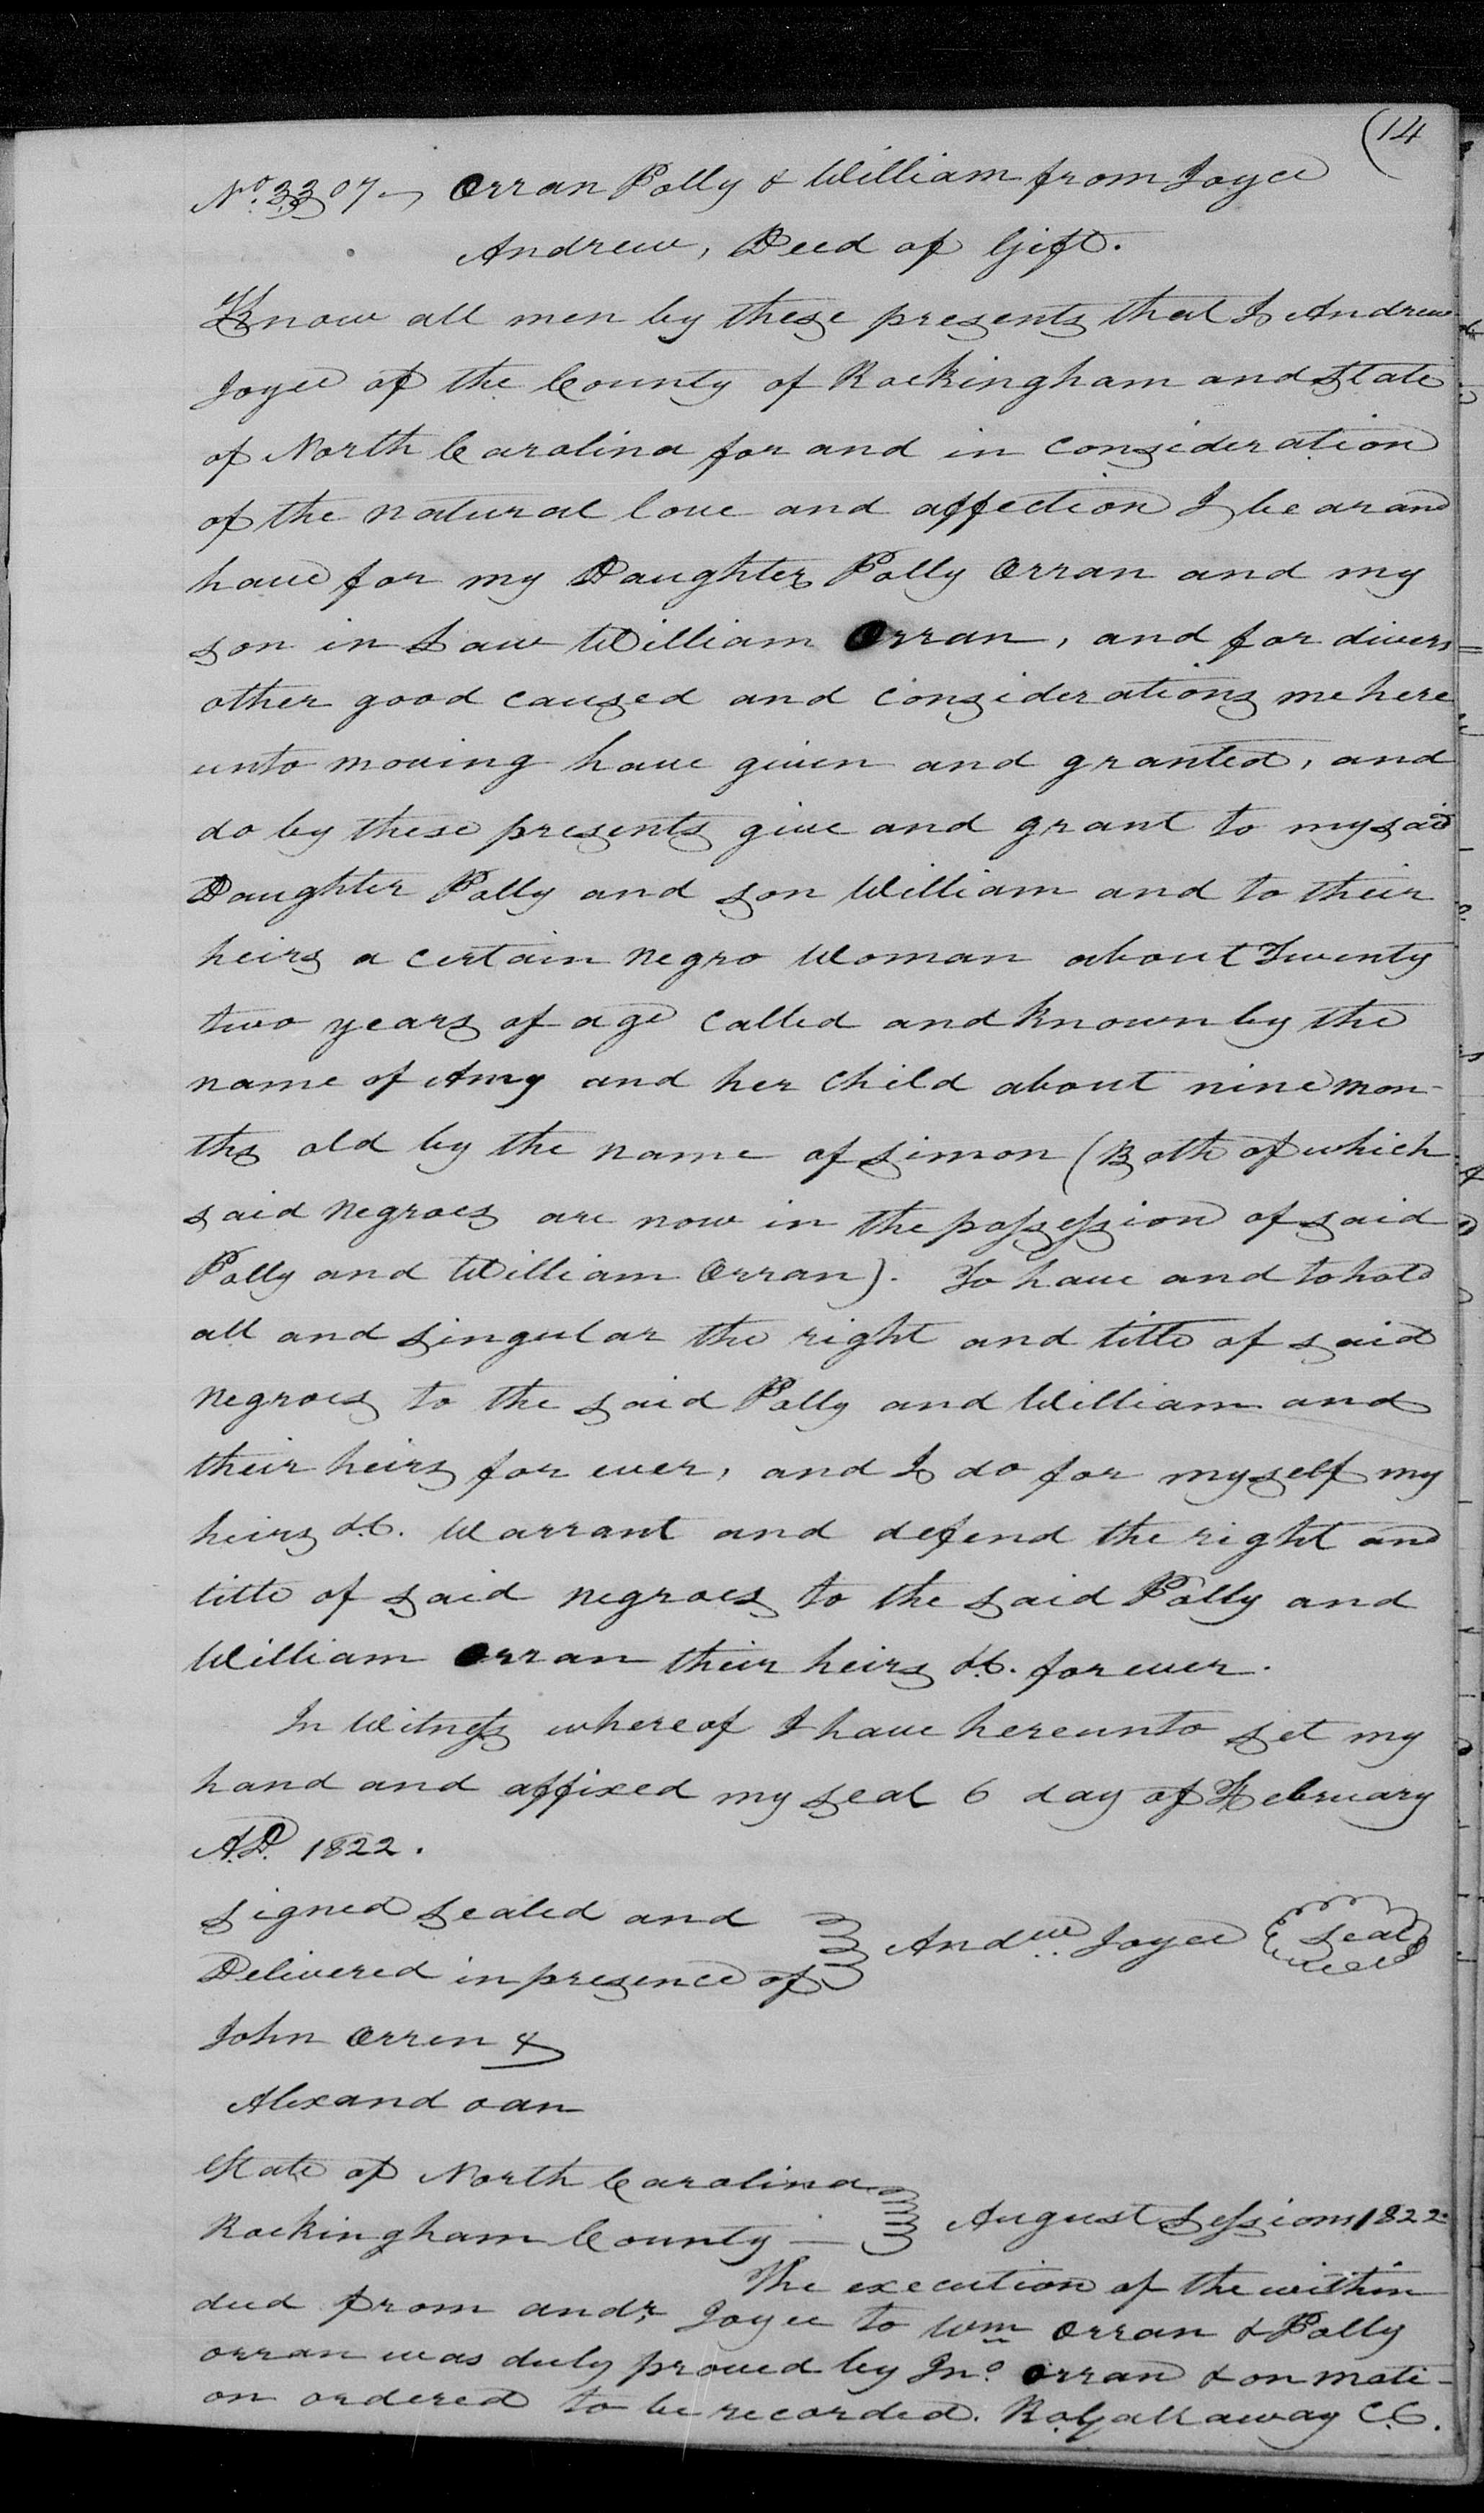 (14
No. 3307 Orran Polly & William from Joyce
Andrew, Deed of Gift.
Know all men by these presents that I Andrew
Joyce of the County of Rockingham and State
of North Carolina for and in consideration
of the natural love and affection I bear and
have for my Daughter Polly Orran and my
son in Law William Orran, and for divers
other good caused and considerations me here
unto moving have given and granted, and
do by these presents give and grant to my said
Daughter Polly and son William and to their
heirs a certain negro Woman about Twenty
two years of age called and known by the
name of Amy and her child about nine mon-
ths old by the name of Simon (Both of which
said negroes are now in the possession of said
Polly and William Orran). To have and to hold
all and singular the right and title of said
negroes to the said Polly and William and
their heirs for ever, and I do for myself my
heirs &C. Warrant and defend the right and
title of said negroes to the said Polly and
William Orran their heirs &C. forever.
In Witness whereof I have hereunto set my
hand and affixed my seal 6 day of February
A.D. 1822.
Signed sealed and
Delivered in presence of
Andw. Joyce Seal
John Orren &
Alexand oan
State of North Carolina
Rockingham County — August Sessions 1822
The execution of the within
deed from andr. Joyce to Wm Orran & Polly
orran was duly proved by Jno. Orran & on moti-
on ordered to be recorded. Ro. Gallaway C.C.